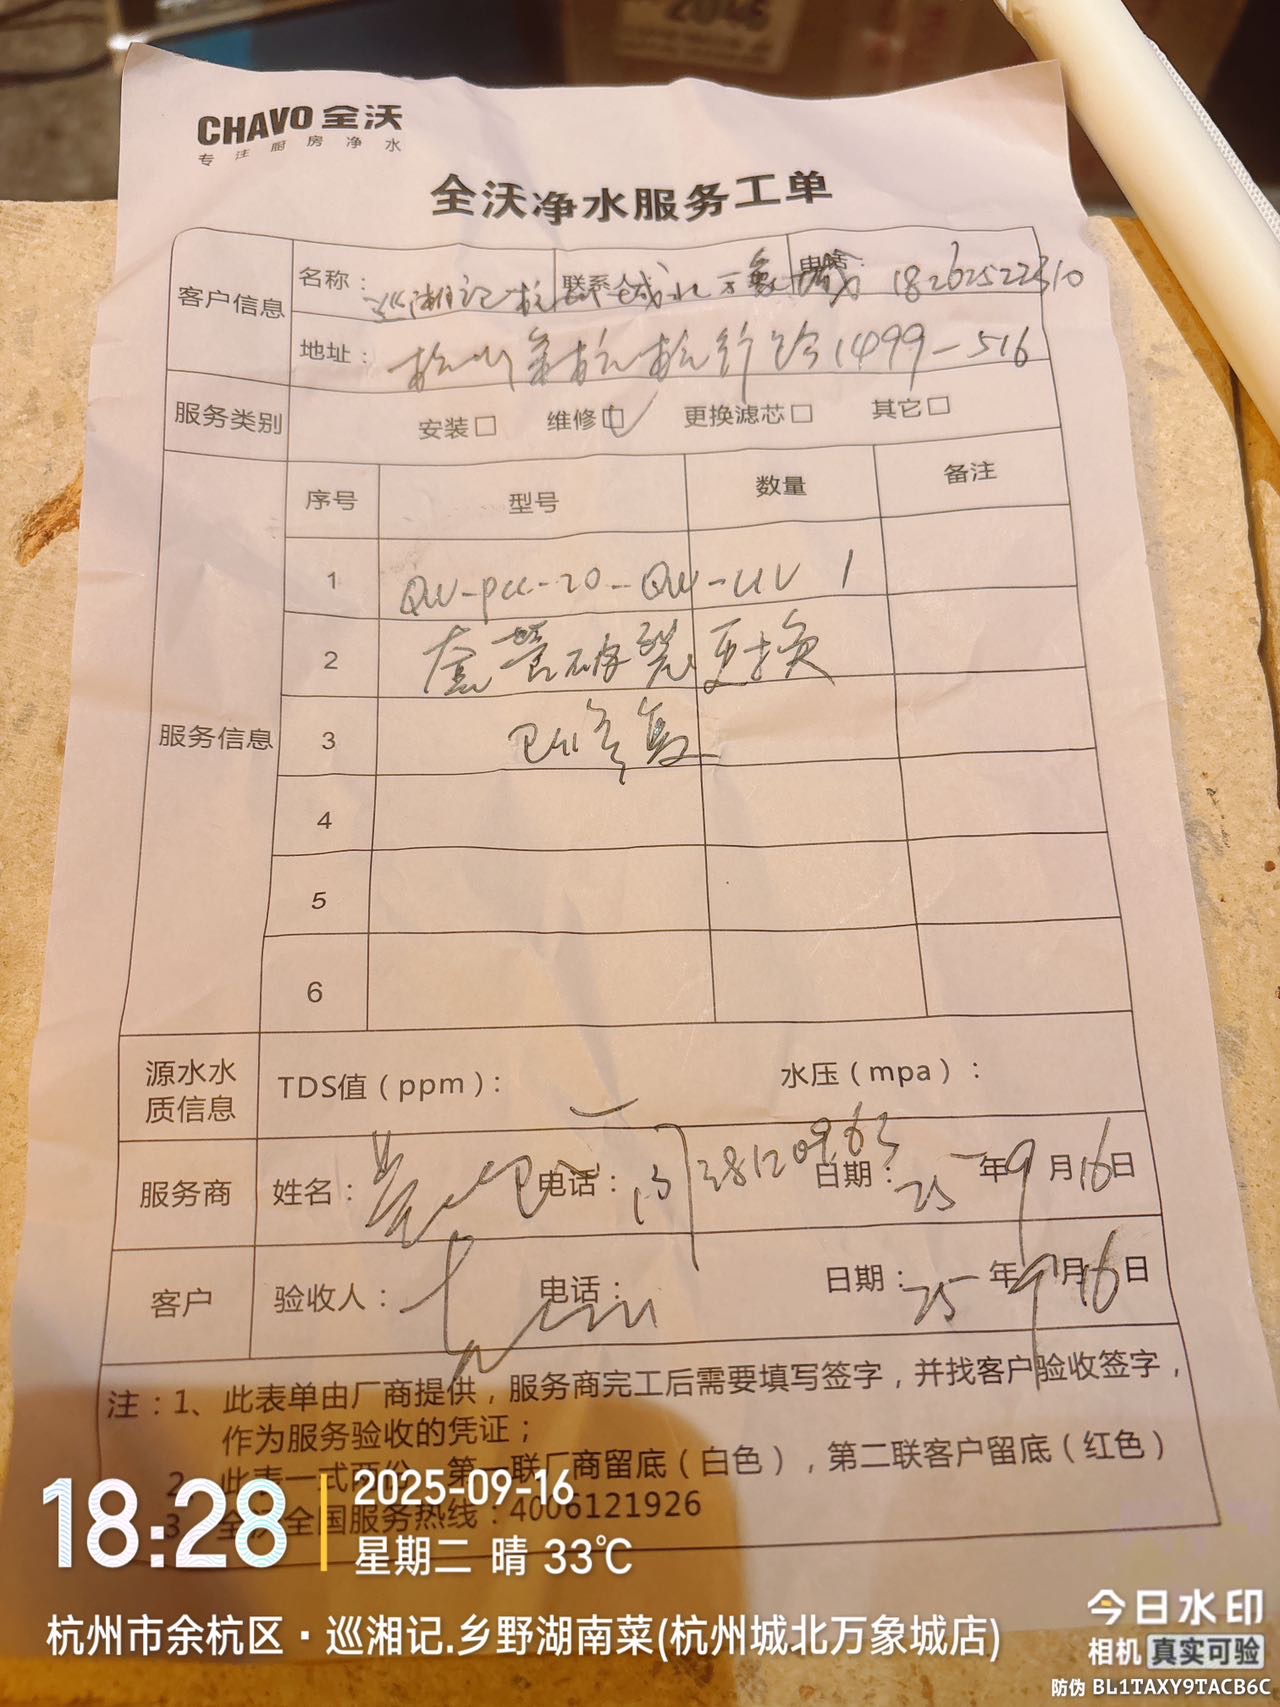 2046
CHAVO 全沃
专注厨房净水
全沃净水服务工单
客户信息
名称：巡湘记杭州城北万象城 联系 电话：18262522310
地址：杭州 杭行路1499-516
服务类别
安装□ 维修□✓ 更换滤芯□ 其它□
服务信息
序号 型号 数量 备注
1 QW-PCC-20-QW-UV 1
2 套管破裂更换
3 已修复
4
5
6
源水水质信息
TDS值（ppm）： 水压（mpa）：
服务商 姓名： 电话： 日期：25年9月16日
客户 验收人： 电话： 日期：25年9月16日
注：1、此表单由厂商提供，服务商完工后需要填写签字，并找客户验收签字，
作为服务验收的凭证；
2、此表一式两份，第一联厂商留底（白色），第二联客户留底（红色）
3、全沃全国服务热线：4006121926
18:28
2025-09-16
星期二 晴 33℃
杭州市余杭区·巡湘记.乡野湖南菜(杭州城北万象城店)
今日水印
相机 真实可验
防伪 BL1TAXY9TACB6C